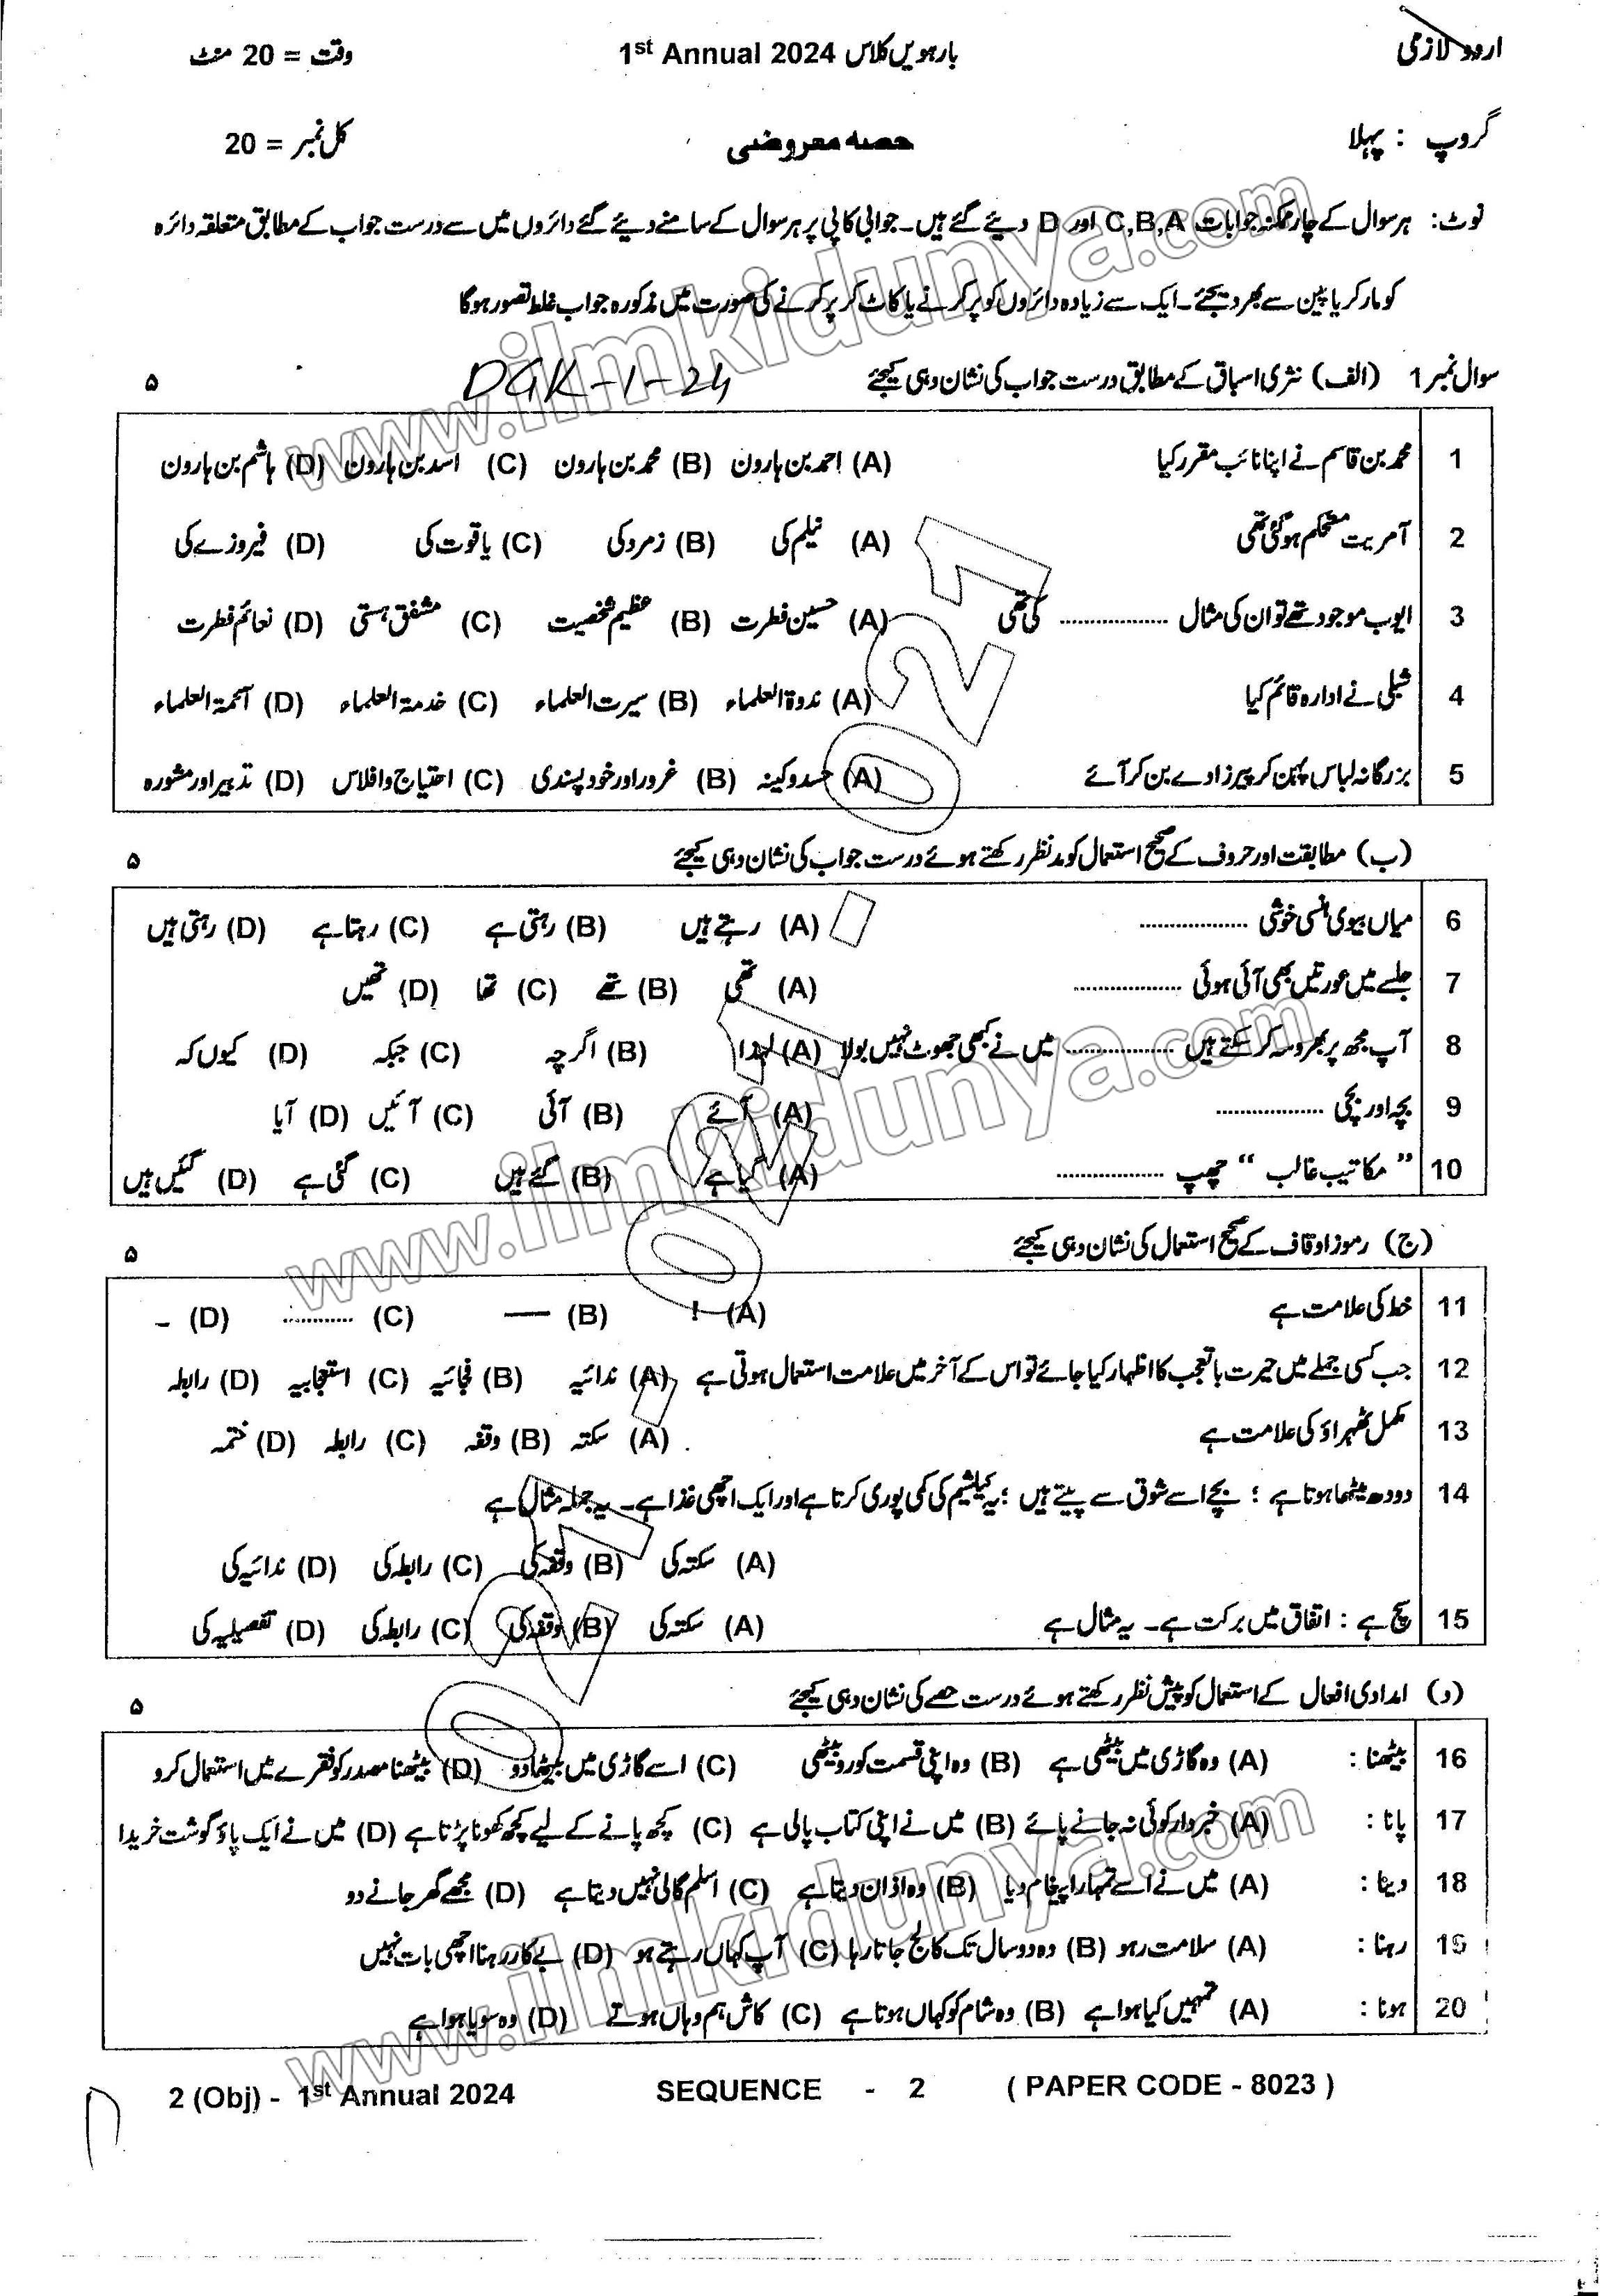 اردو لازمی
بارہویں کلاس 1st Annual 2024
وقت = 20 منٹ
گروپ : پہلا
حصہ معروضی
کل نمبر = 20
نوٹ: ہر سوال کے چار ممکنہ جوابات C,B,A اور D دیئے گئے ہیں۔ جوابی کاپی پر ہر سوال کے سامنے دیئے گئے دائروں میں سے درست جواب کے مطابق متعلقہ دائرہ
کو مارکر یا پین سے بھر دیجئے۔ ایک سے زیادہ دائروں کو پر کرنے یا کاٹ کر پر کرنے کی صورت میں مذکورہ جواب غلط تصور ہوگا
سوال نمبر 1 (الف) نثری اسباق کے مطابق درست جواب کی نشان دہی کیجئے DGK-1-24 ۵
1 محمد بن قاسم نے اپنا نائب مقرر کیا (A) احمد بن ہارون (B) محمد بن ہارون (C) اسد بن ہارون (D) ہاشم بن ہارون
2 آمریت مستحکم ہو گئی تھی (A) نیلم کی (B) زمرد کی (C) یاقوت کی (D) فیروزے کی
3 ایوب موجود تھے تو ان کی مثال .................. کی تھی (A) حسین فطرت (B) عظیم شخصیت (C) مشفق ہستی (D) نعائم فطرت
4 شبلی نے ادارہ قائم کیا (A) ندوۃ العلماء (B) سیرت العلماء (C) خدمۃ العلماء (D) آئمۃ العلماء
5 بزرگانہ لباس پہن کر پیرزادے بن کر آئے (A) حسد و کینہ (B) غرور اور خود پسندی (C) احتیاج و افلاس (D) تدبیر اور مشورہ
(ب) مطابقت اور حروف کے صحیح استعمال کو مدنظر رکھتے ہوئے درست جواب کی نشان دہی کیجئے ۵
6 میاں بیوی ہنسی خوشی .................. (A) رہتے ہیں (B) رہتی ہے (C) رہتا ہے (D) رہتی ہیں
7 جلسے میں عورتیں بھی آئی ہوئی .................. (A) تھی (B) تھے (C) تھا (D) تھیں
8 آپ مجھ پر بھروسہ کر سکتے ہیں .................. میں نے کبھی جھوٹ نہیں بولا (A) لہذا (B) اگرچہ (C) جبکہ (D) کیوں کہ
9 بچہ اور بچی .................. (A) آئے (B) آئی (C) آئیں (D) آیا
10 ”مکاتیب غالب“ چھپ .................. (A) گیا ہے (B) گئے ہیں (C) گئی ہے (D) گئیں ہیں
(ج) رموز اوقاف کے صحیح استعمال کی نشان دہی کیجئے ۵
11 خط کی علامت ہے (A) ! (B) — (C) ............ (D) -
12 جب کسی جملے میں حیرت یا تعجب کا اظہار کیا جائے تو اس کے آخر میں علامت استعمال ہوتی ہے (A) ندائیہ (B) فجائیہ (C) استعجابیہ (D) رابطہ
13 مکمل ٹھہراؤ کی علامت ہے (A) سکتہ (B) وقفہ (C) رابطہ (D) ختمہ
14 دودھ میٹھا ہوتا ہے ؛ بچے اسے شوق سے پیتے ہیں ؛ یہ کیلشیم کی کمی پوری کرتا ہے اور ایک اچھی غذا ہے۔ یہ جملہ مثال ہے
(A) سکتہ کی (B) وقفہ کی (C) رابطہ کی (D) ندائیہ کی
15 سچ ہے : اتفاق میں برکت ہے۔ یہ مثال ہے (A) سکتہ کی (B) وقفہ کی (C) رابطہ کی (D) تفصیلیہ کی
(د) امدادی افعال کے استعمال کو پیش نظر رکھتے ہوئے درست حصے کی نشان دہی کیجئے ۵
16 بیٹھنا : (A) وہ گاڑی میں بیٹھی ہے (B) وہ اپنی قسمت کو رو بیٹھی (C) اسے گاڑی میں بیٹھا دو (D) بیٹھنا مصدر کو فقرے میں استعمال کرو
17 پانا : (A) خبردار کوئی نہ جانے پائے (B) میں نے اپنی کتاب پالی ہے (C) کچھ پانے کے لیے کچھ کھونا پڑتا ہے (D) میں نے ایک پاؤ گوشت خریدا
18 دینا : (A) میں نے اسے تمہارا پیغام دیا (B) وہ اذان دیتا ہے (C) اسلم گالی نہیں دیتا ہے (D) مجھے گھر جانے دو
19 رہنا : (A) سلامت رہو (B) وہ دو سال تک کالج جاتا رہا (C) آپ کہاں رہتے ہو (D) بے کار رہنا اچھی بات نہیں
20 ہونا : (A) تمہیں کیا ہوا ہے (B) وہ شام کو کہاں ہوتا ہے (C) کاش ہم وہاں ہوتے (D) وہ سویا ہوا ہے
2 (Obj) - 1st Annual 2024 SEQUENCE - 2 ( PAPER CODE - 8023 )
www.ilmkidunya.com
www.ilmkidunya.com
www.ilmkidunya.com
021
021
021